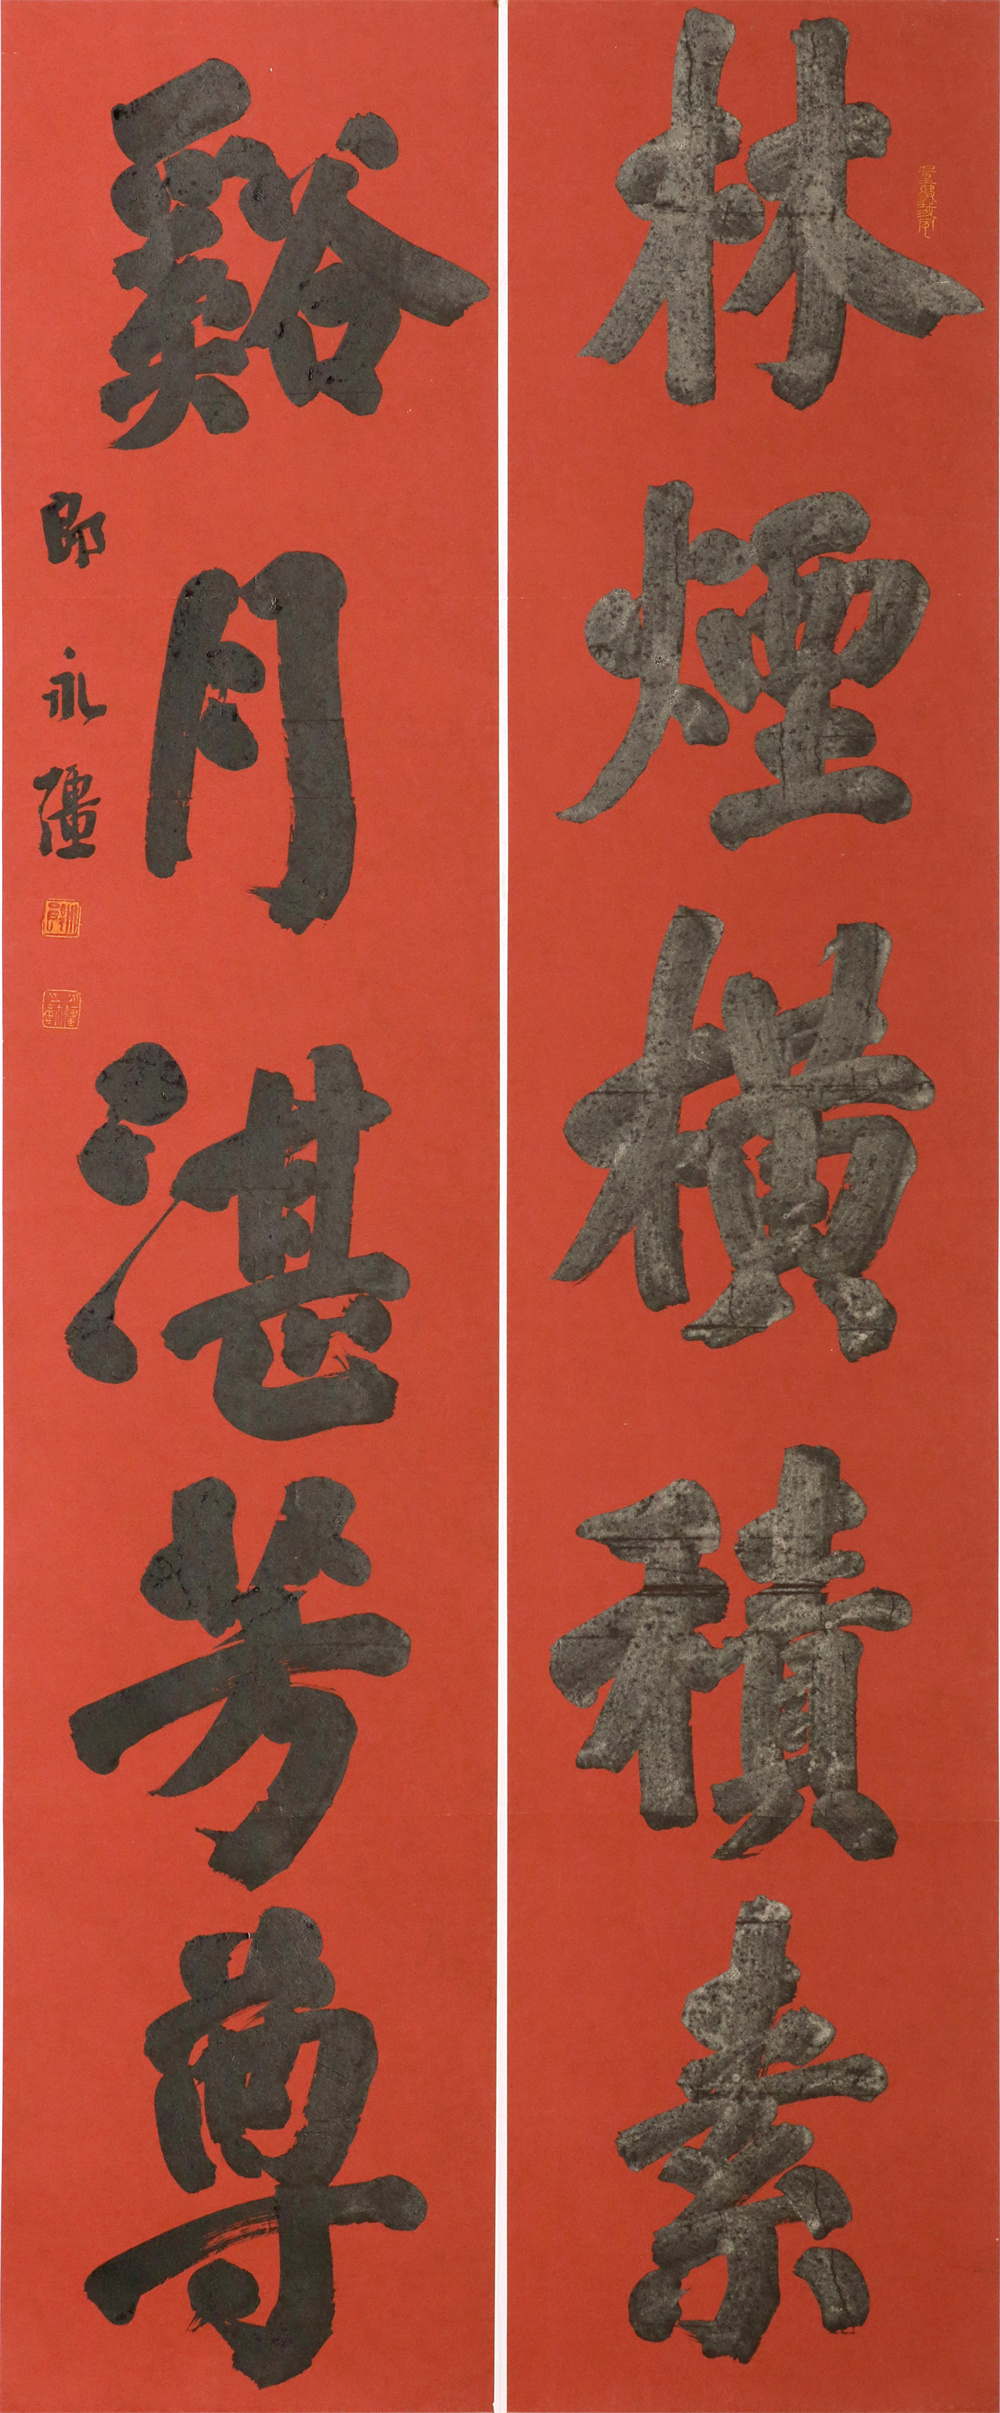 林煙橫積素
谿月湛芳尊
郎永